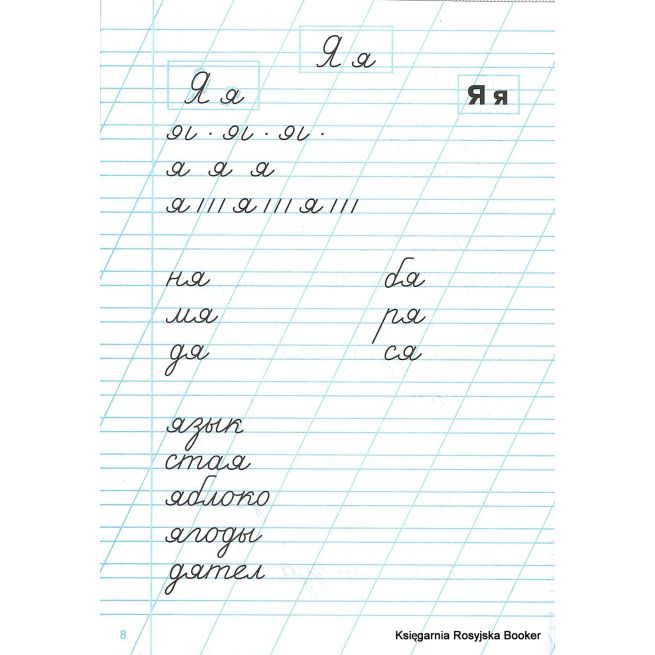 Я я
Я я
Я я
я · я · я ·
я я я
я /// я /// я ///
ня бя
мя ря
дя ся
язык
стая
яблоко
ягоды
дятел
8
Księgarnia Rosyjska Booker